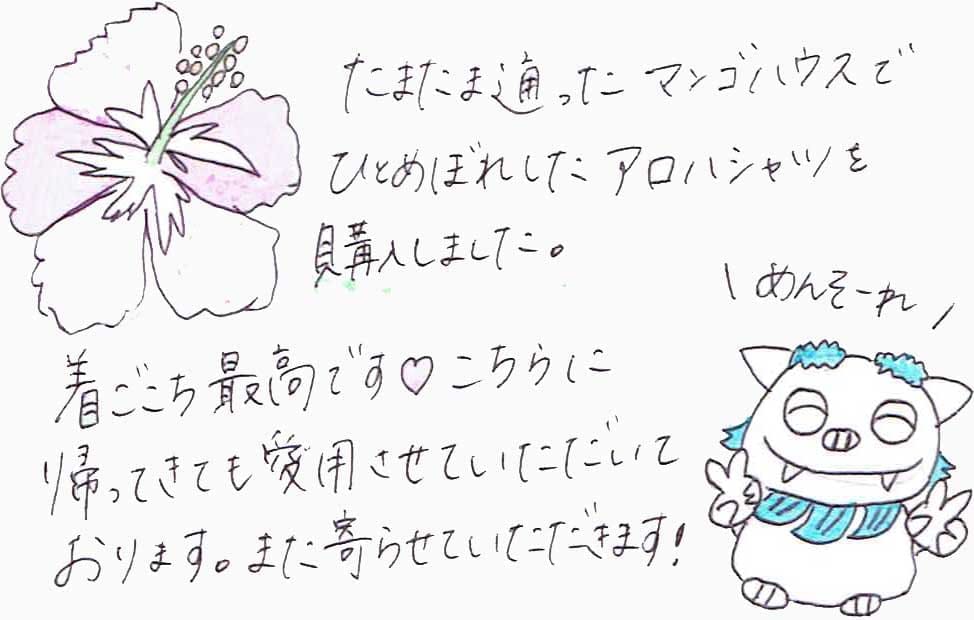 たまたま通ったマンゴハウスで
ひとめぼれしたアロハシャツを
購入しました。
\ めんそーれ /
着ごこち最高です♡こちらに
帰ってきても愛用させていただいて
おります。また寄らせていただきます!